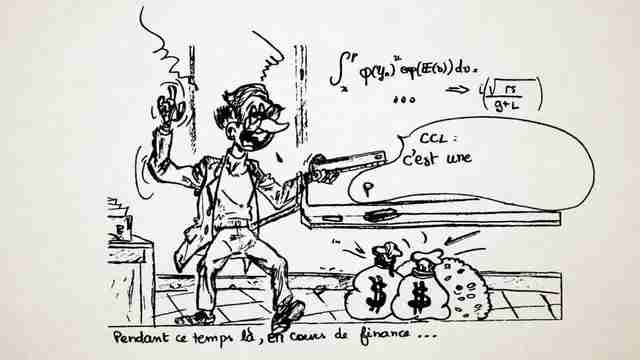 ∫ φ(y)ⁿ exp(E(v)) dv.
... ⇒ (√rs / g+L)
CCL :
c'est une
P
$ $
Pendant ce temps là, en cours de finance ...